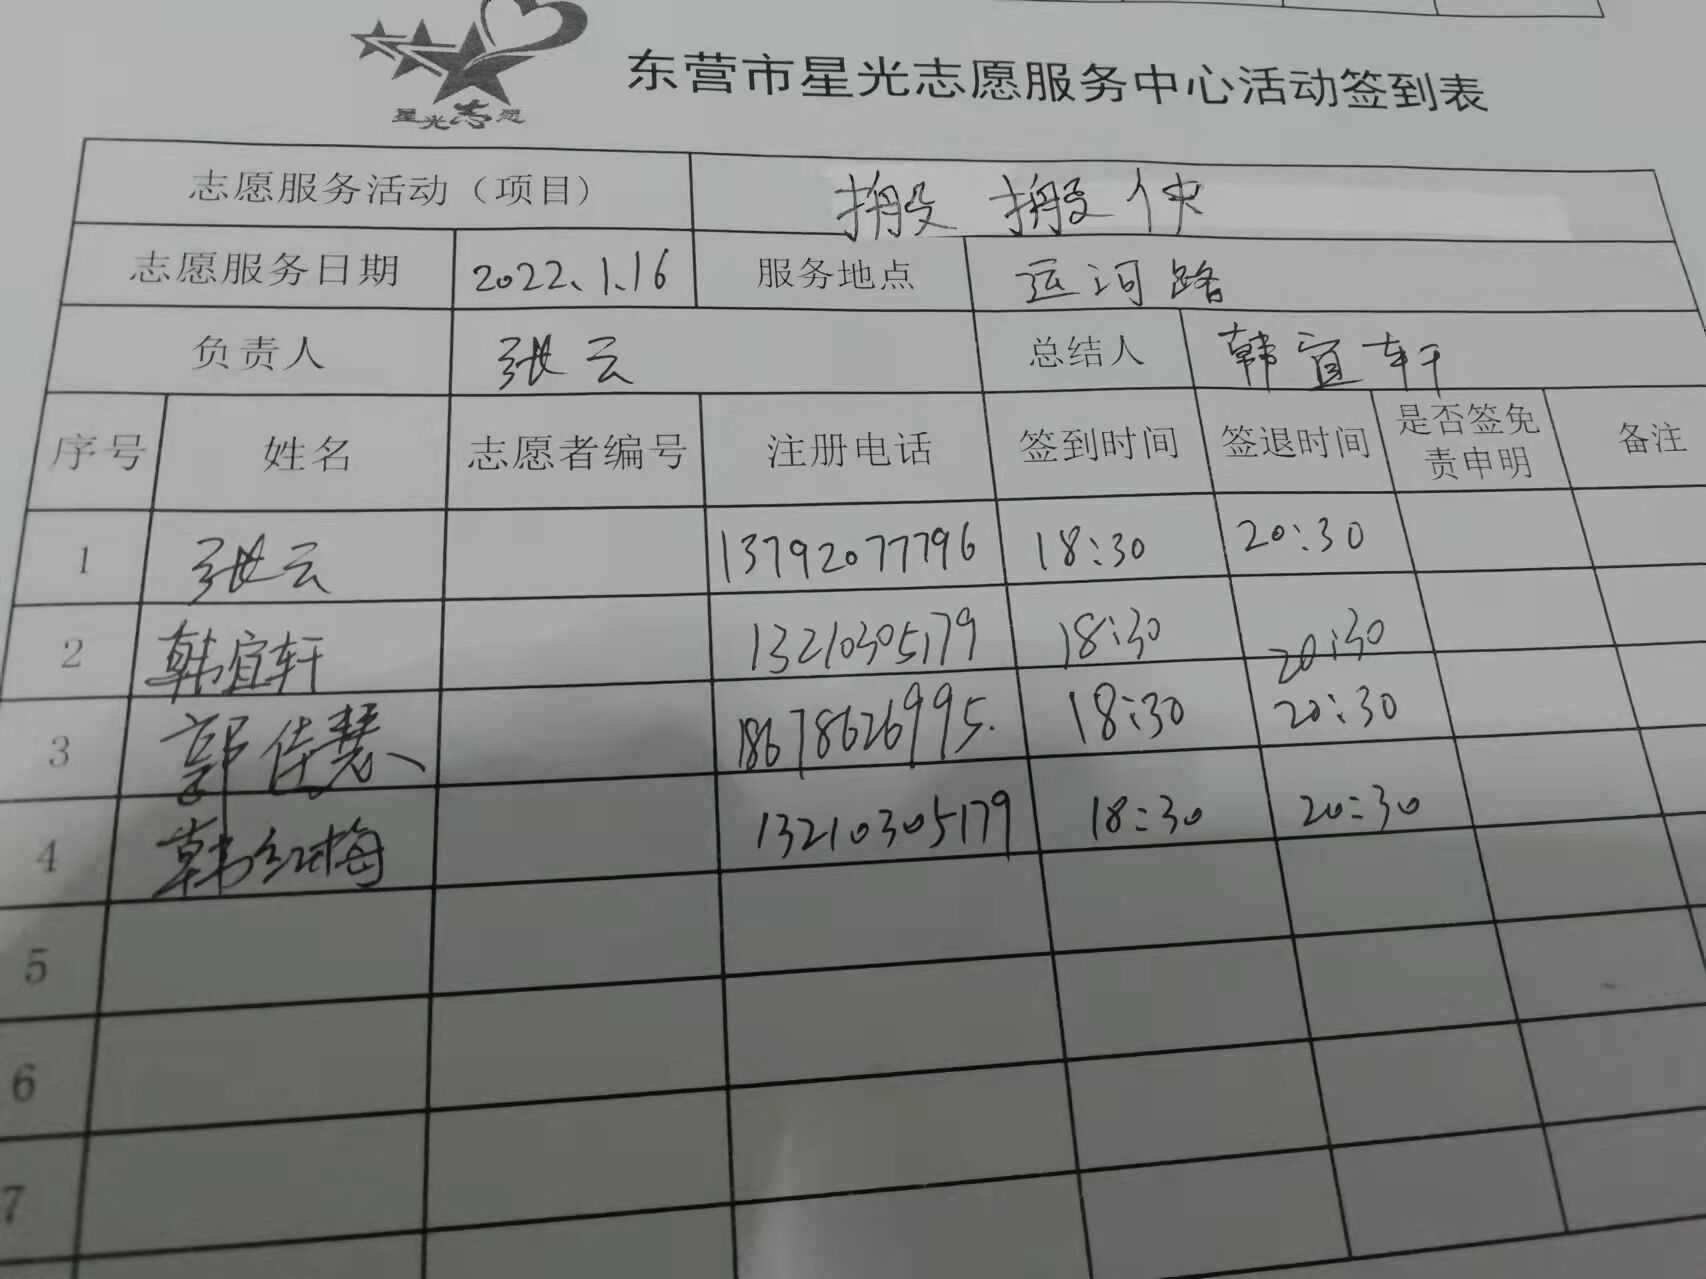 星光志愿
东营市星光志愿服务中心活动签到表
志愿服务活动（项目） 搬搬侠
志愿服务日期 2022.1.16 服务地点 运河路
负责人 张云 总结人 韩宜轩
序号 姓名 志愿者编号 注册电话 签到时间 签退时间 是否签免责申明 备注
1 张云 13792077796 18:30 20:30
2 韩宜轩 13210305179 18:30 20:30
3 郭佳慧 18678626995. 18:30 20:30
4 韩红梅 13210305179 18:30 20:30
5
6
7